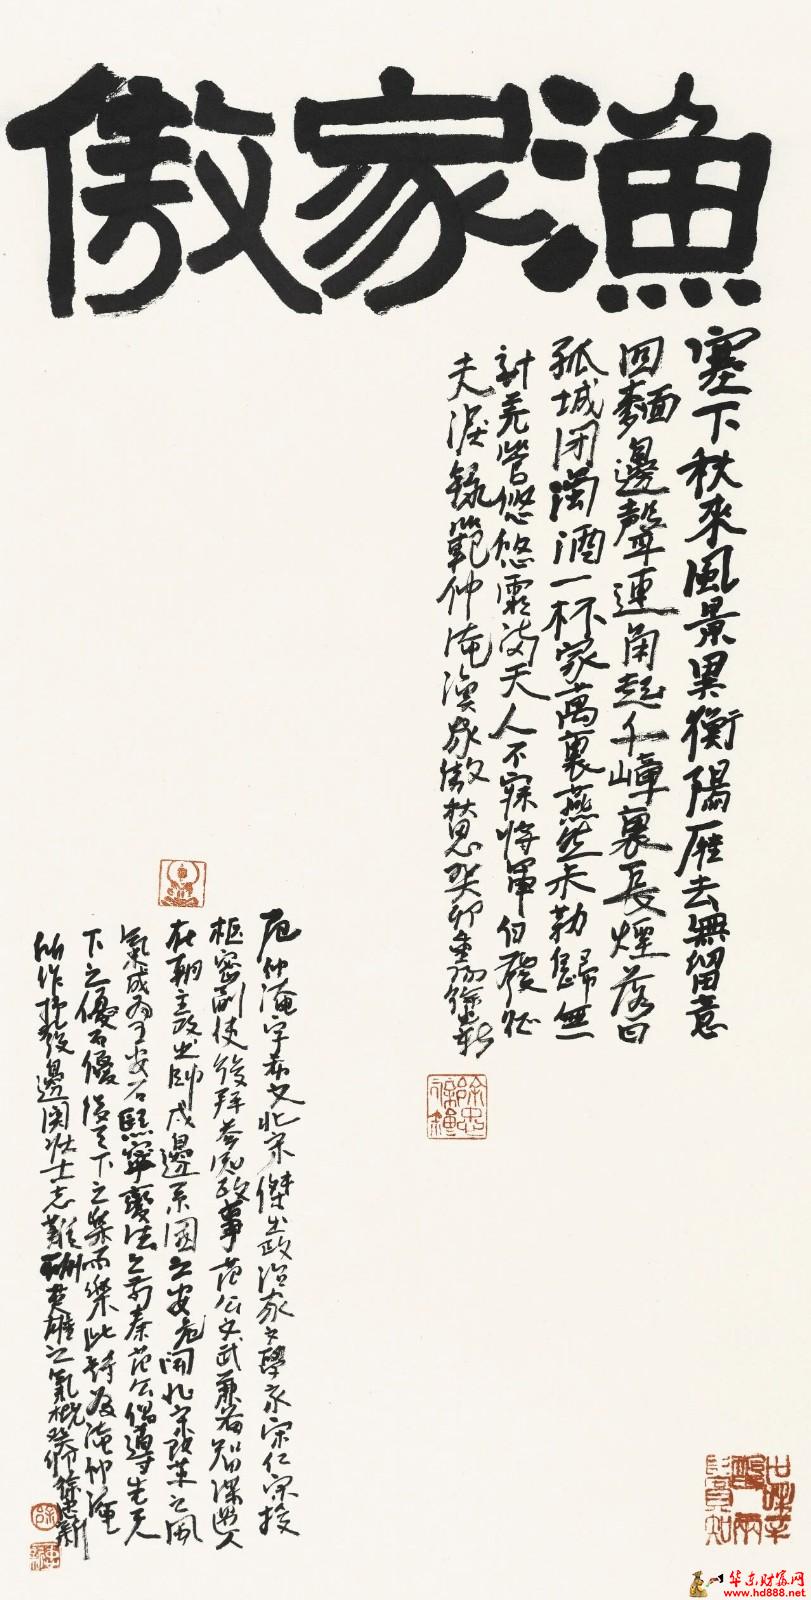 漁家傲
塞下秋來風景異衡陽雁去無留意
四麵邊聲連角起千嶂裏長煙落日
孤城閉濁酒一杯家萬裏燕然未勒歸無
計羌管悠悠霜滿天人不寐將軍白發征
夫淚錄範仲淹漁家傲秋思癸卯重陽徐忠新
范仲淹字希文北宋傑出政治家文學家宋仁宗授
樞密副使後拜參知政事范公文武兼備智深過人
在朝主政出帥戍邊系國之安危開北宋改革之風
氣成為王安石熙寧變法之前奏范公倡導先天
下之優而優後天下之樂而樂此詩為淹仲淹
所作抒發邊関壯士志難酬英雄之氣概癸卯徐忠新
華东财富网
www.hd888.net